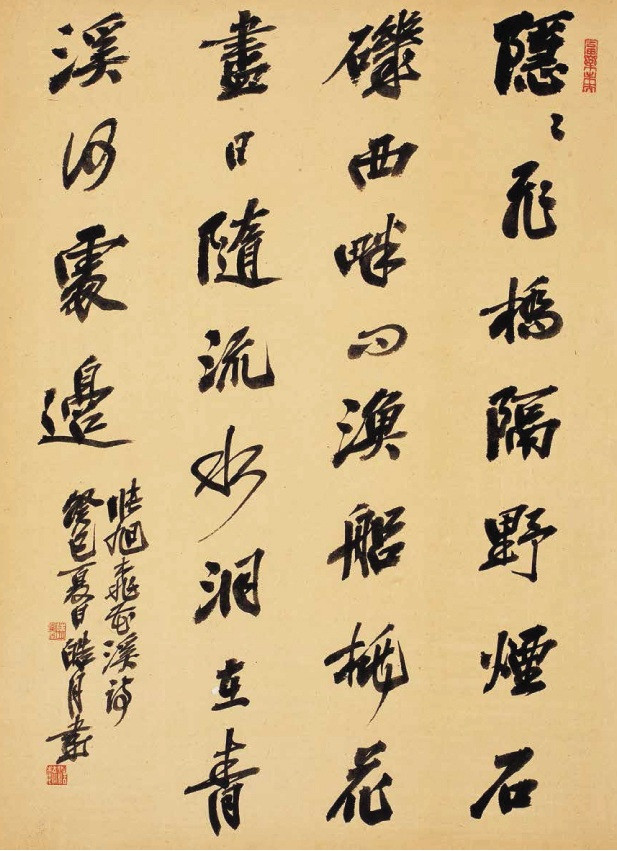 隱〻飛橋隔野煙石
磯西畔问漁船桃花
盡日隨流水洞在青
溪何處邊
張旭桃花溪詩
癸巳夏日皓月書